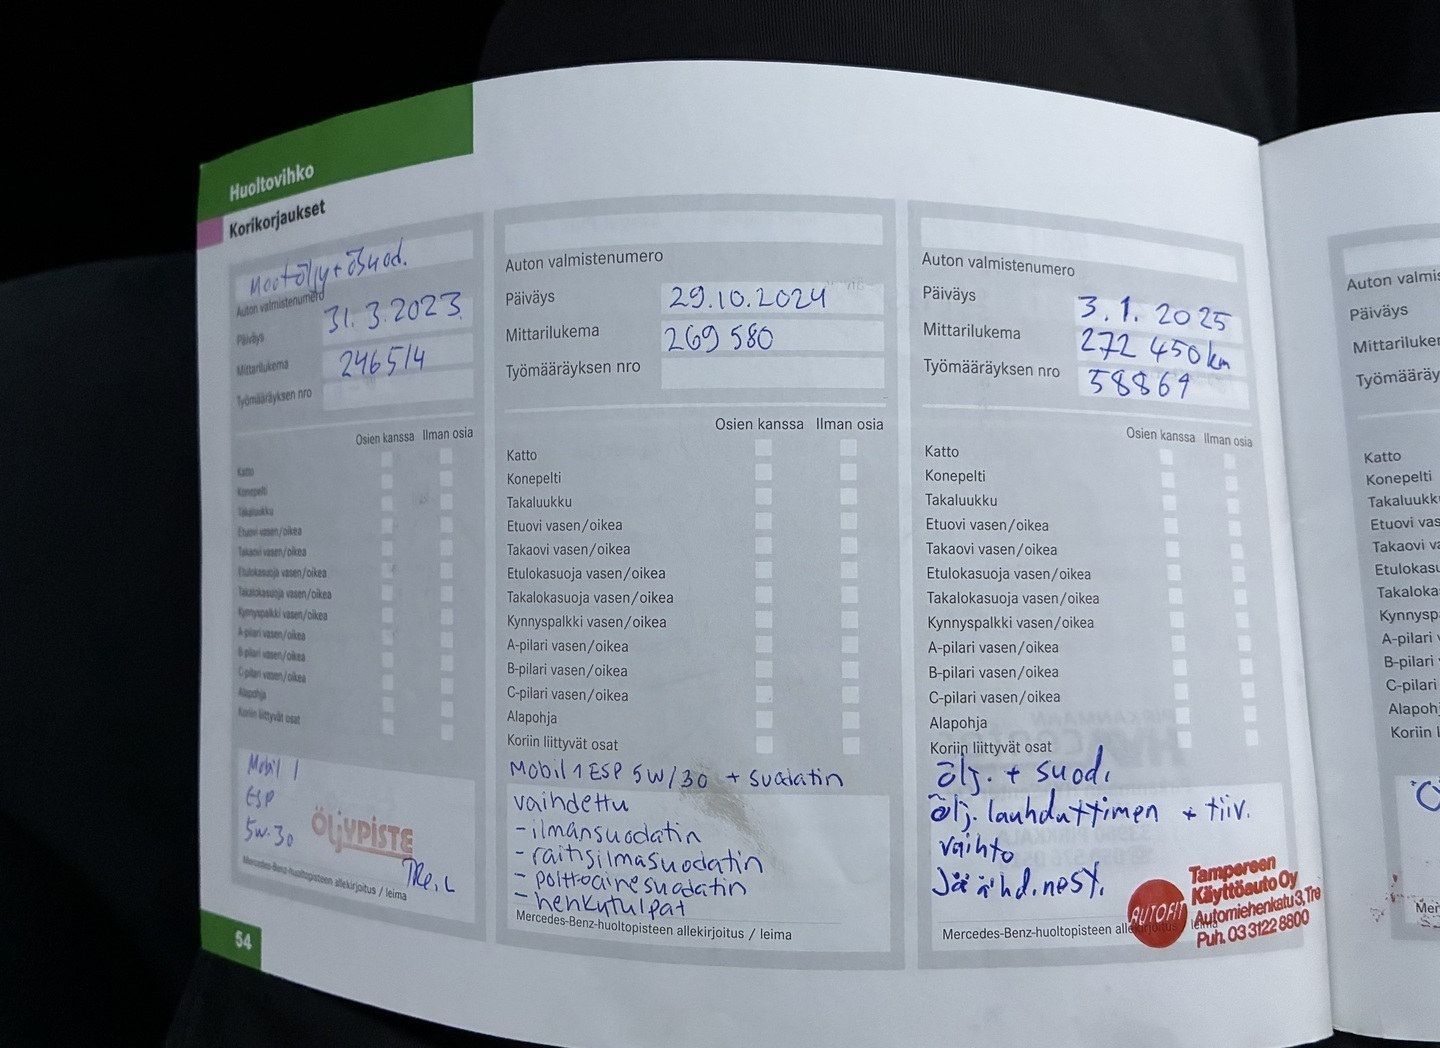 Huoltovihko
Korikorjaukset
Auton valmistenumero
31.3.2023
Päiväys
246514
Mittarilukema
Työmääräyksen nro
Osien kanssa Ilman osia
Katto
Konepelti
Takaluukku
Etuovi vasen/oikea
Takaovi vasen/oikea
Etulokasuoja vasen/oikea
Takalokasuoja vasen/oikea
Kynnyspalkki vasen/oikea
A-pilari vasen/oikea
B-pilari vasen/oikea
C-pilari vasen/oikea
Alapohja
Koriin liittyvät osat
Mobil 1
ESP
5W-30
ÖLJYPISTE
Mercedes-Benz-huoltopisteen allekirjoitus / leima
54
Auton valmistenumero
Päiväys 29.10.2024
Mittarilukema 269 580
Työmääräyksen nro
Osien kanssa Ilman osia
Katto
Konepelti
Takaluukku
Etuovi vasen/oikea
Takaovi vasen/oikea
Etulokasuoja vasen/oikea
Takalokasuoja vasen/oikea
Kynnyspalkki vasen/oikea
A-pilari vasen/oikea
B-pilari vasen/oikea
C-pilari vasen/oikea
Alapohja
Koriin liittyvät osat
Mobil 1 ESP 5W/30 + suodatin
vaihdettu
- ilmansuodatin
- raitisilmasuodatin
- polttoainesuodatin
- hehkutulpat
Mercedes-Benz-huoltopisteen allekirjoitus / leima
Auton valmistenumero
Päiväys 3.1.2025
Mittarilukema 272 450 km
Työmääräyksen nro 58869
Osien kanssa Ilman osia
Katto
Konepelti
Takaluukku
Etuovi vasen/oikea
Takaovi vasen/oikea
Etulokasuoja vasen/oikea
Takalokasuoja vasen/oikea
Kynnyspalkki vasen/oikea
A-pilari vasen/oikea
B-pilari vasen/oikea
C-pilari vasen/oikea
Alapohja
Koriin liittyvät osat
ölj. + suod.
ölj. lauhduttimen + tiiv.
vaihto
Jäähd.nest.
AUTOFIT
Tampereen
Käyttöauto Oy
Automiehenkatu 3, Tre
Puh. 03 3122 8800
Mercedes-Benz-huoltopisteen allekirjoitus / leima
Auton valmis
Päiväys
Mittariluker
Työmääräy
Katto
Konepelti
Takaluukk
Etuovi vas
Takaovi va
Etulokasu
Takaloka
Kynnysp
A-pilari v
B-pilari
C-pilari
Alapoh
Koriin l
Mer